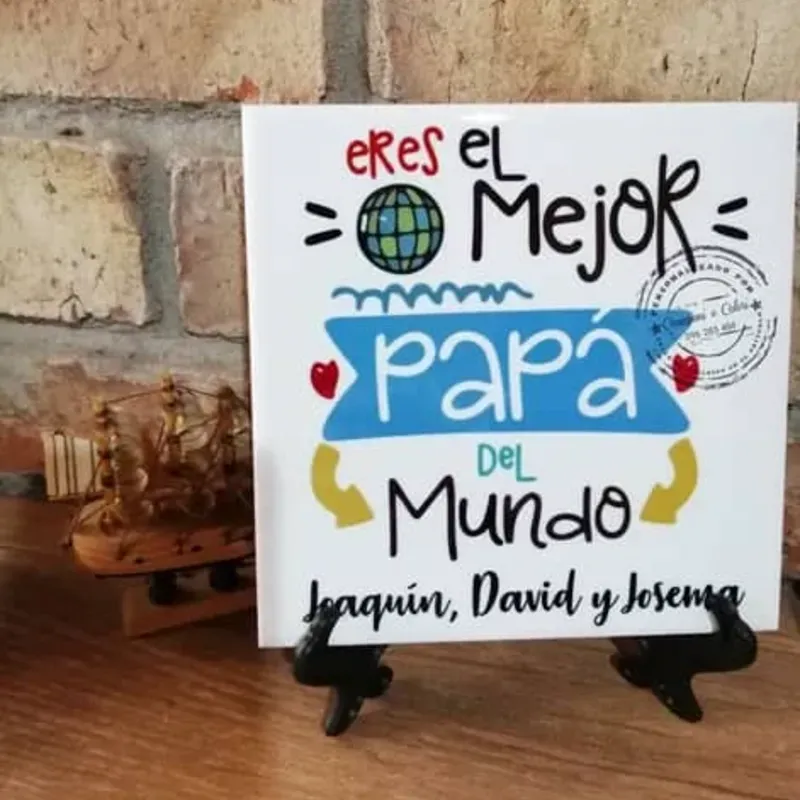 eRes eL
MejoR
papá
DeL
Mundo
Joaquín, David y Josema
PERSONALIZADO POR